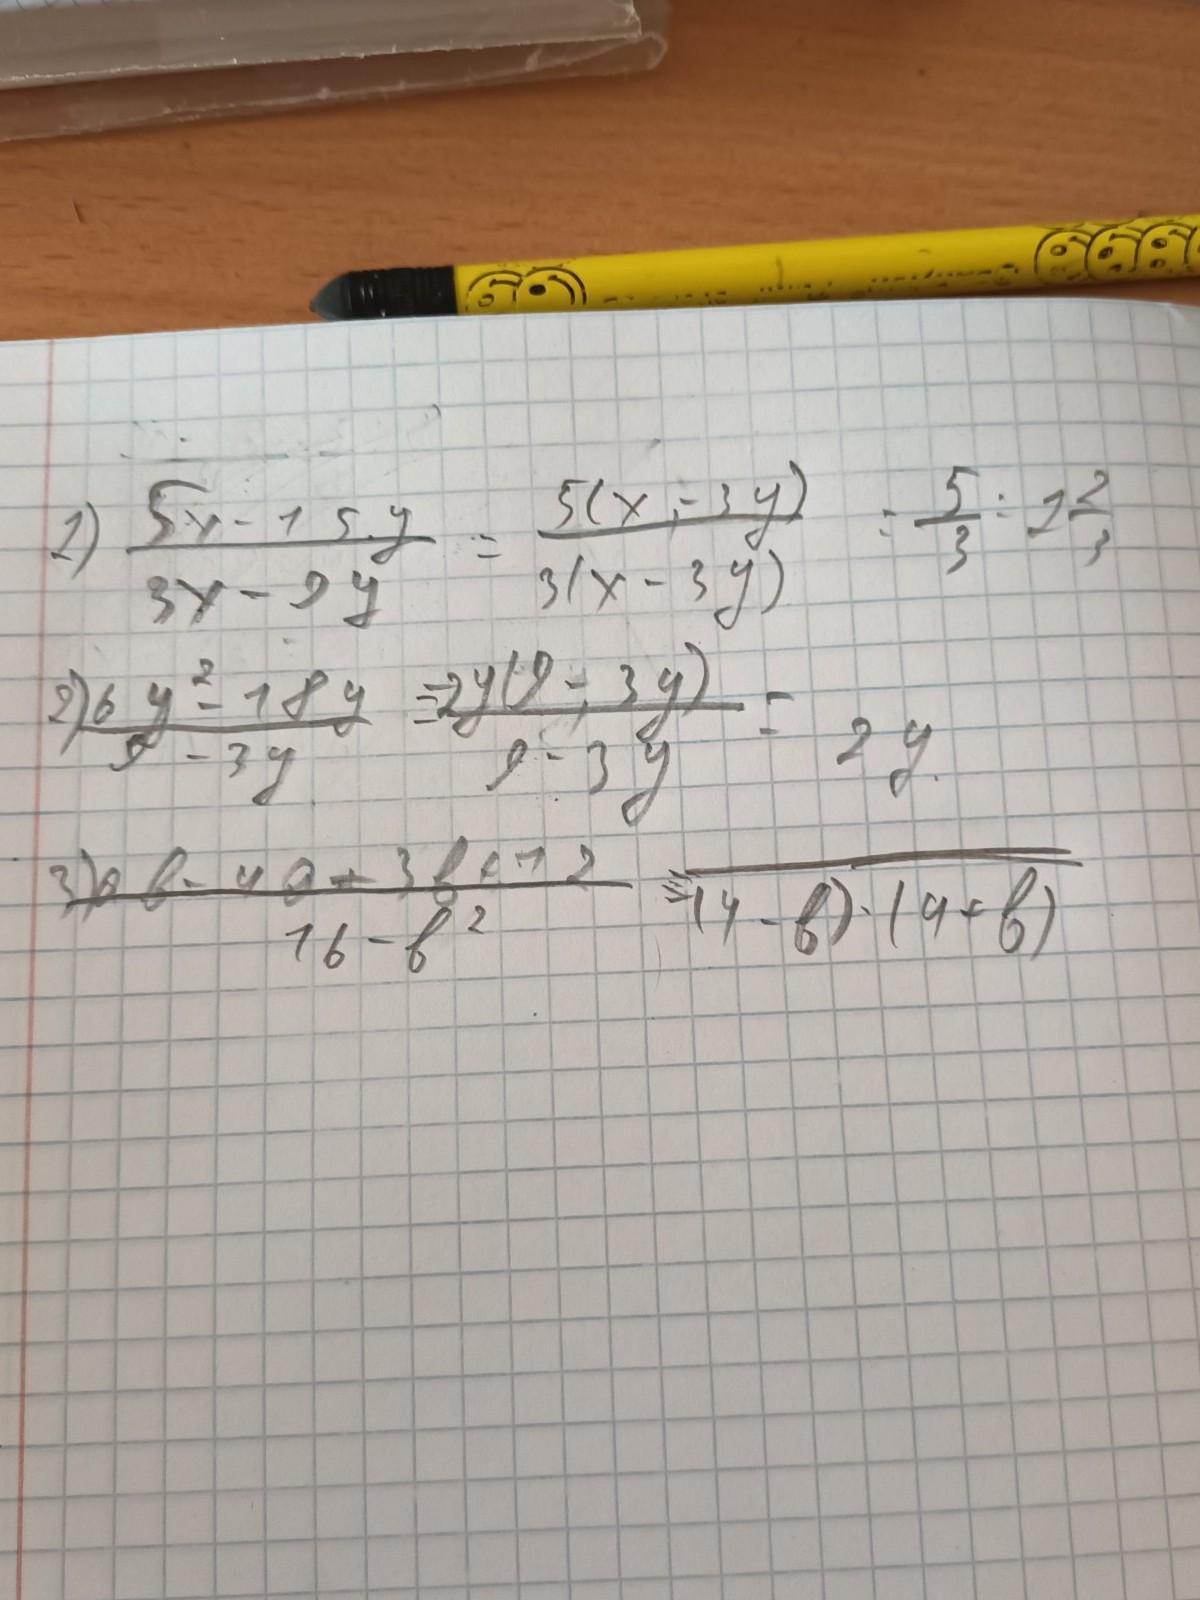 1) (5x - 15y)/(3x - 9y) = 5(x - 3y)/3(x - 3y) = 5/3 = 1 2/3
2) (6y² - 18y)/(9 - 3y) = 2y(9 - 3y)/(9 - 3y) = 2y
3) (ab - 4a + 3b + 12)/(16 - b²) = /(4 - b)·(4 + b)